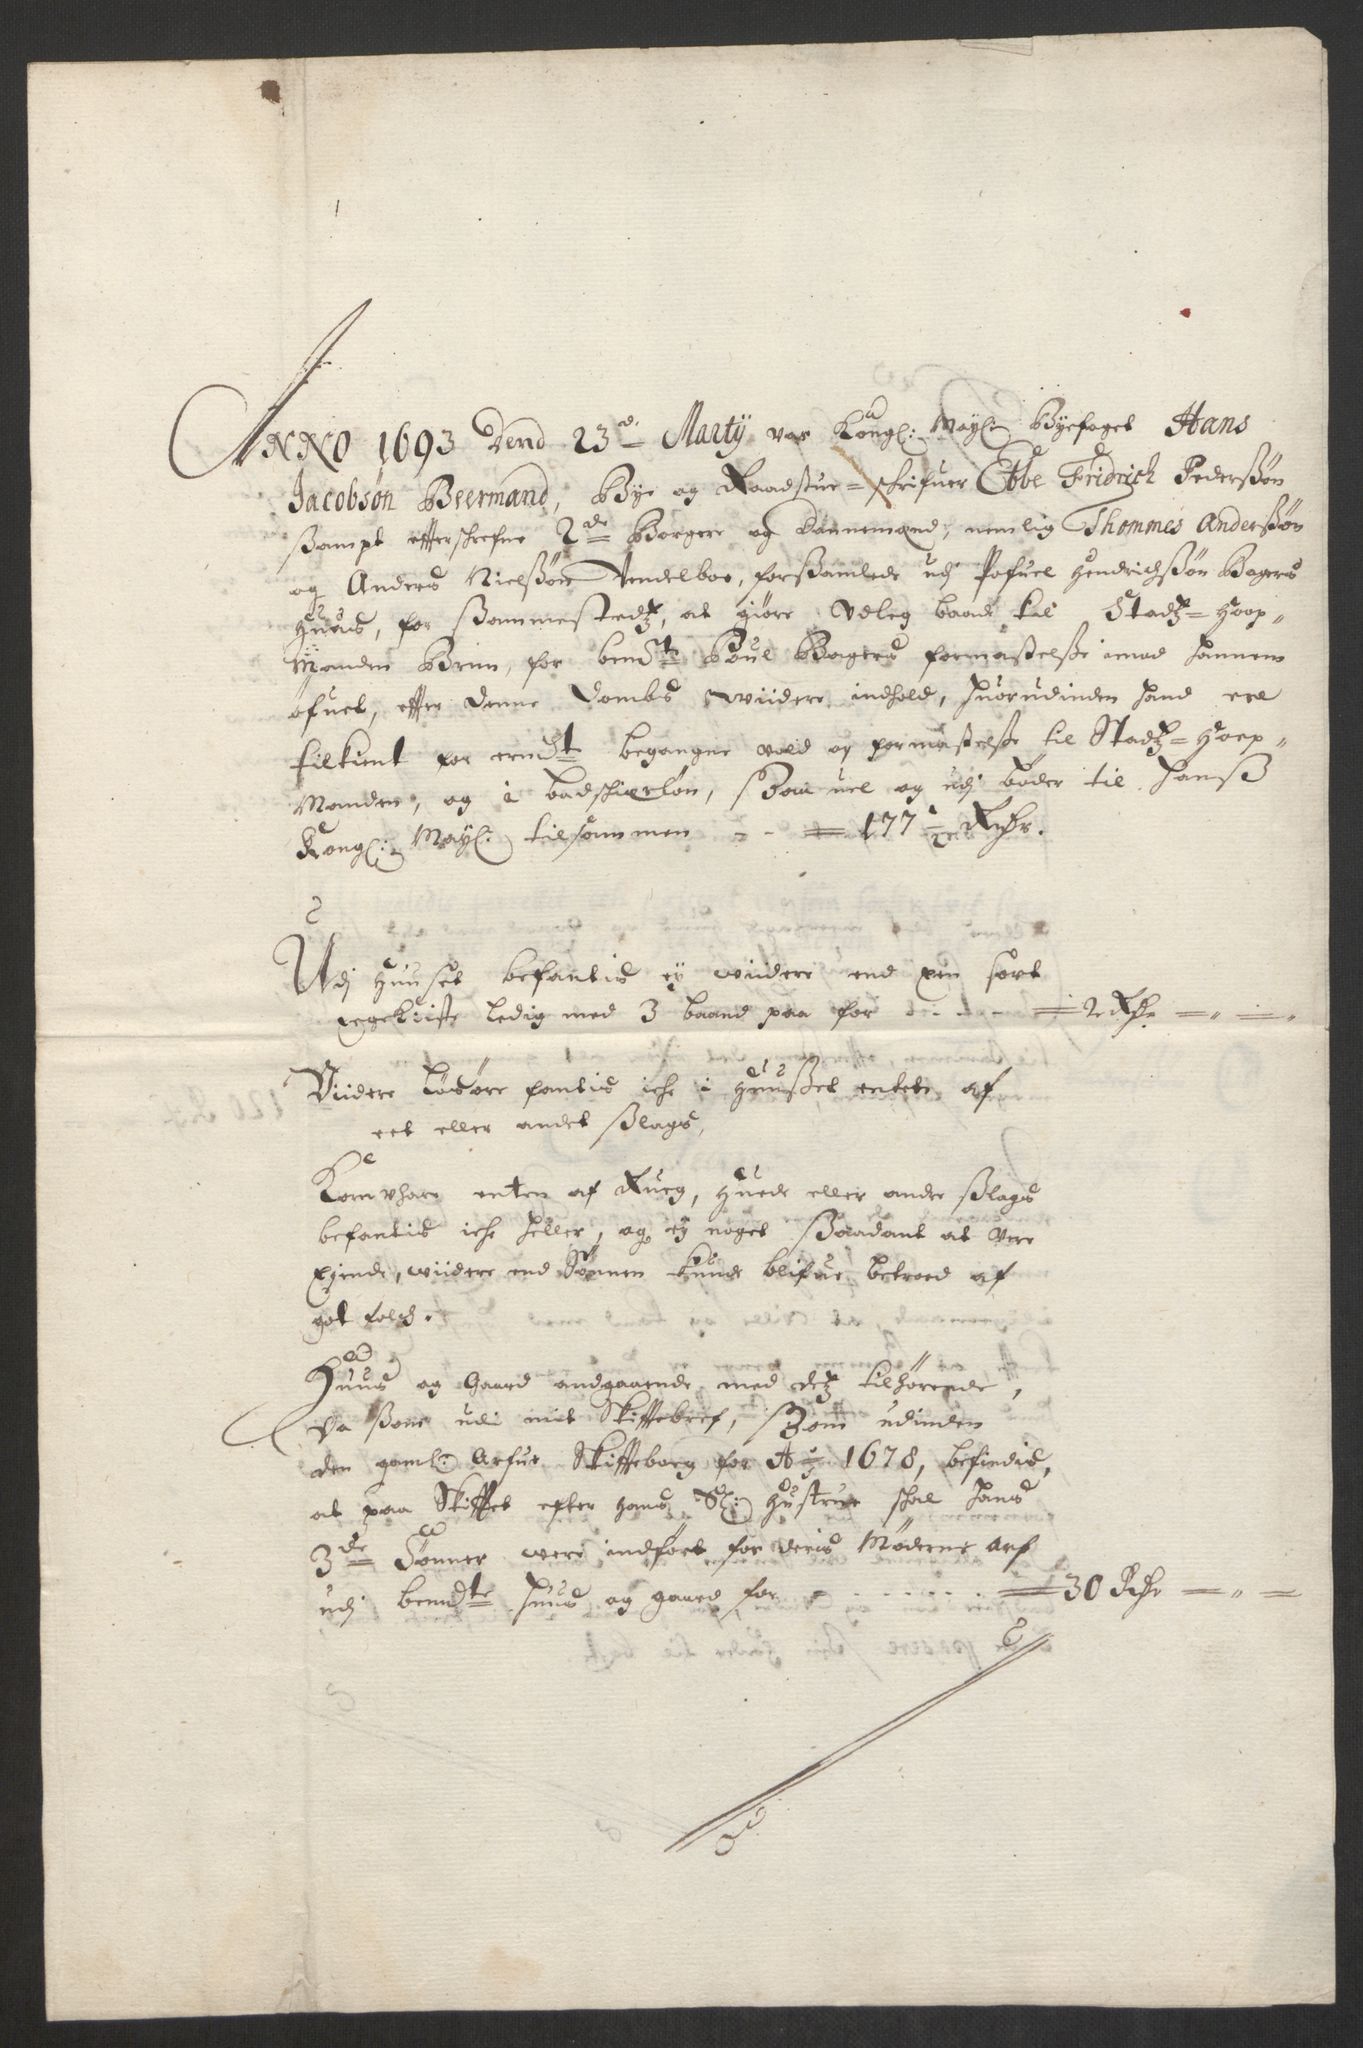 ANNO 1693 Dend 23d Martij var Kongl: Mayt: Byefoget Hans
Jacobsøn Beermand, Bye og Raadstue-schrifuer Ebbe Fridrich Pederssøn
ssampt efterschrefne 2de Borgere og Dannemænd, nemlig Thommes Anderssøn
og Anders Nielssøn Vendelboe, forssamlede udj Pofuel Hendrichssøn Bagers
Huus, for ssammestedtz, at giøre Udleg baade til Stadtz-Hoep-
Manden Brun, for bemte Poul Bagers formastelsse imod hannem
øfuet, efter denne Dombs widere indhold, huorudinden hand er
tilkient for ermte begangne vold og formastelsse til Stadtz-Hoep-
Manden, og i badschierløn, ssaa uel og udj bøder til Hanss
Kongl: Mayt: tilsammen - - 177 1/2 Rdr.
Udj Huuset befantis ej widere end een sort
eegekiiste ledig med 3 baand paa for - - - 2 Rdr
Viidere løsøre fantis iche i Huusset enten af
eet eller andet sslags,
Kornvhare enten af Rueg, Huede eller andre sslags
befantis iche heller, og ej noget ssaadant at vere
Ejende, widere end Sønnen kunde blifue betroed af
got folch.
Huus og Gaard andgaaende med detz tilhørende,
Da ssom udi mit Skiftebref, ssom udinden
den gaml: Arfue Skiftebog for Ao 1678, befindis,
at paa Skiftet efter hans Sl: Hustrue schal hans
3de Sønner were indført for deris Møderne Arf
udj bemdte Huus og gaard for - - - - - 30 Rdr